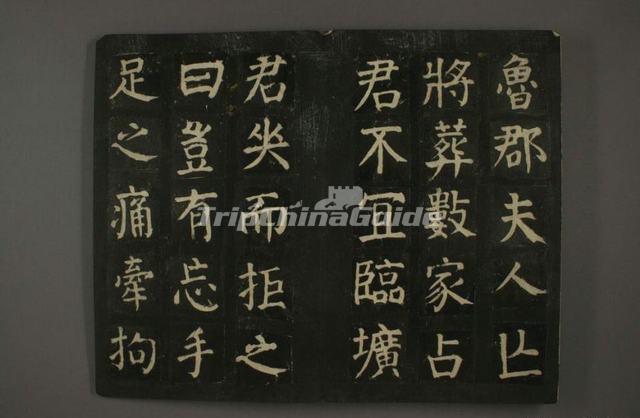 魯郡夫人亾
將葬數家占
君不冝臨壙
君而拒之
曰豈有忘手
足之痛牽拘
TripChinaGuide